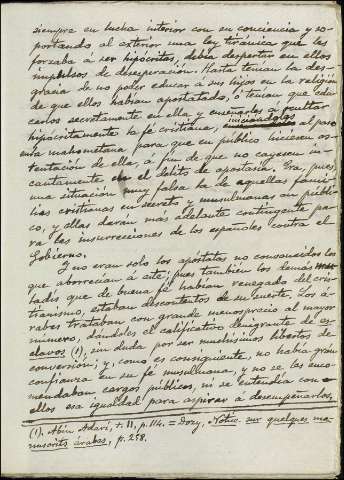 siempre en lucha interior con su conciencia y so-
portando al exterior una ley tiránica que les
forzaba a ser hipócritas, debía despertar en ellos
impulsos de desesperación. Hasta tenían la des-
gracia de no poder educar á sus hijos en la religión
de que ellos habían apostatado, ó tenían que edu-
carlos secretamente en ella y enseñarles á ocultar
hipócritamente la fé cristiana, al paso
mahometana para que en público hiciesen os-
tentación de ella, a fin de que no cayesen in-
cautamente en el delito de apostasía. Era, pues
una situación muy falsa la de aquellas fami-
lias cristianas en secreto y musulmanas en públi-
co, y ellas darán más adelante contingente pa-
ra las insurrecciones de los españoles contra el
Gobierno.
Y no eran solo los apóstatas no conocidos los
que aborrecían á este; pues también los demás
ladís que de buena fé habían renegado del cris-
tianismo, estaban descontentos de su suerte. Los á-
rabes trataban con grande menosprecio al mayor
número, dándoles el calificativo denigrante de es-
clavos (1), sin duda por ser muchísimos libertos de
conversión; y, como es consiguiente, no había gran
confianza en su fé musulmana, y no se les enco-
mendaban cargos públicos, ni se entendía con
ellos esa igualdad para aspirar á desempeñarlos,
(1). Abin Adarí, t. II, p. 114. = Dozy, Notice sur quelques ma-
nuscrits árabes, p. 258.